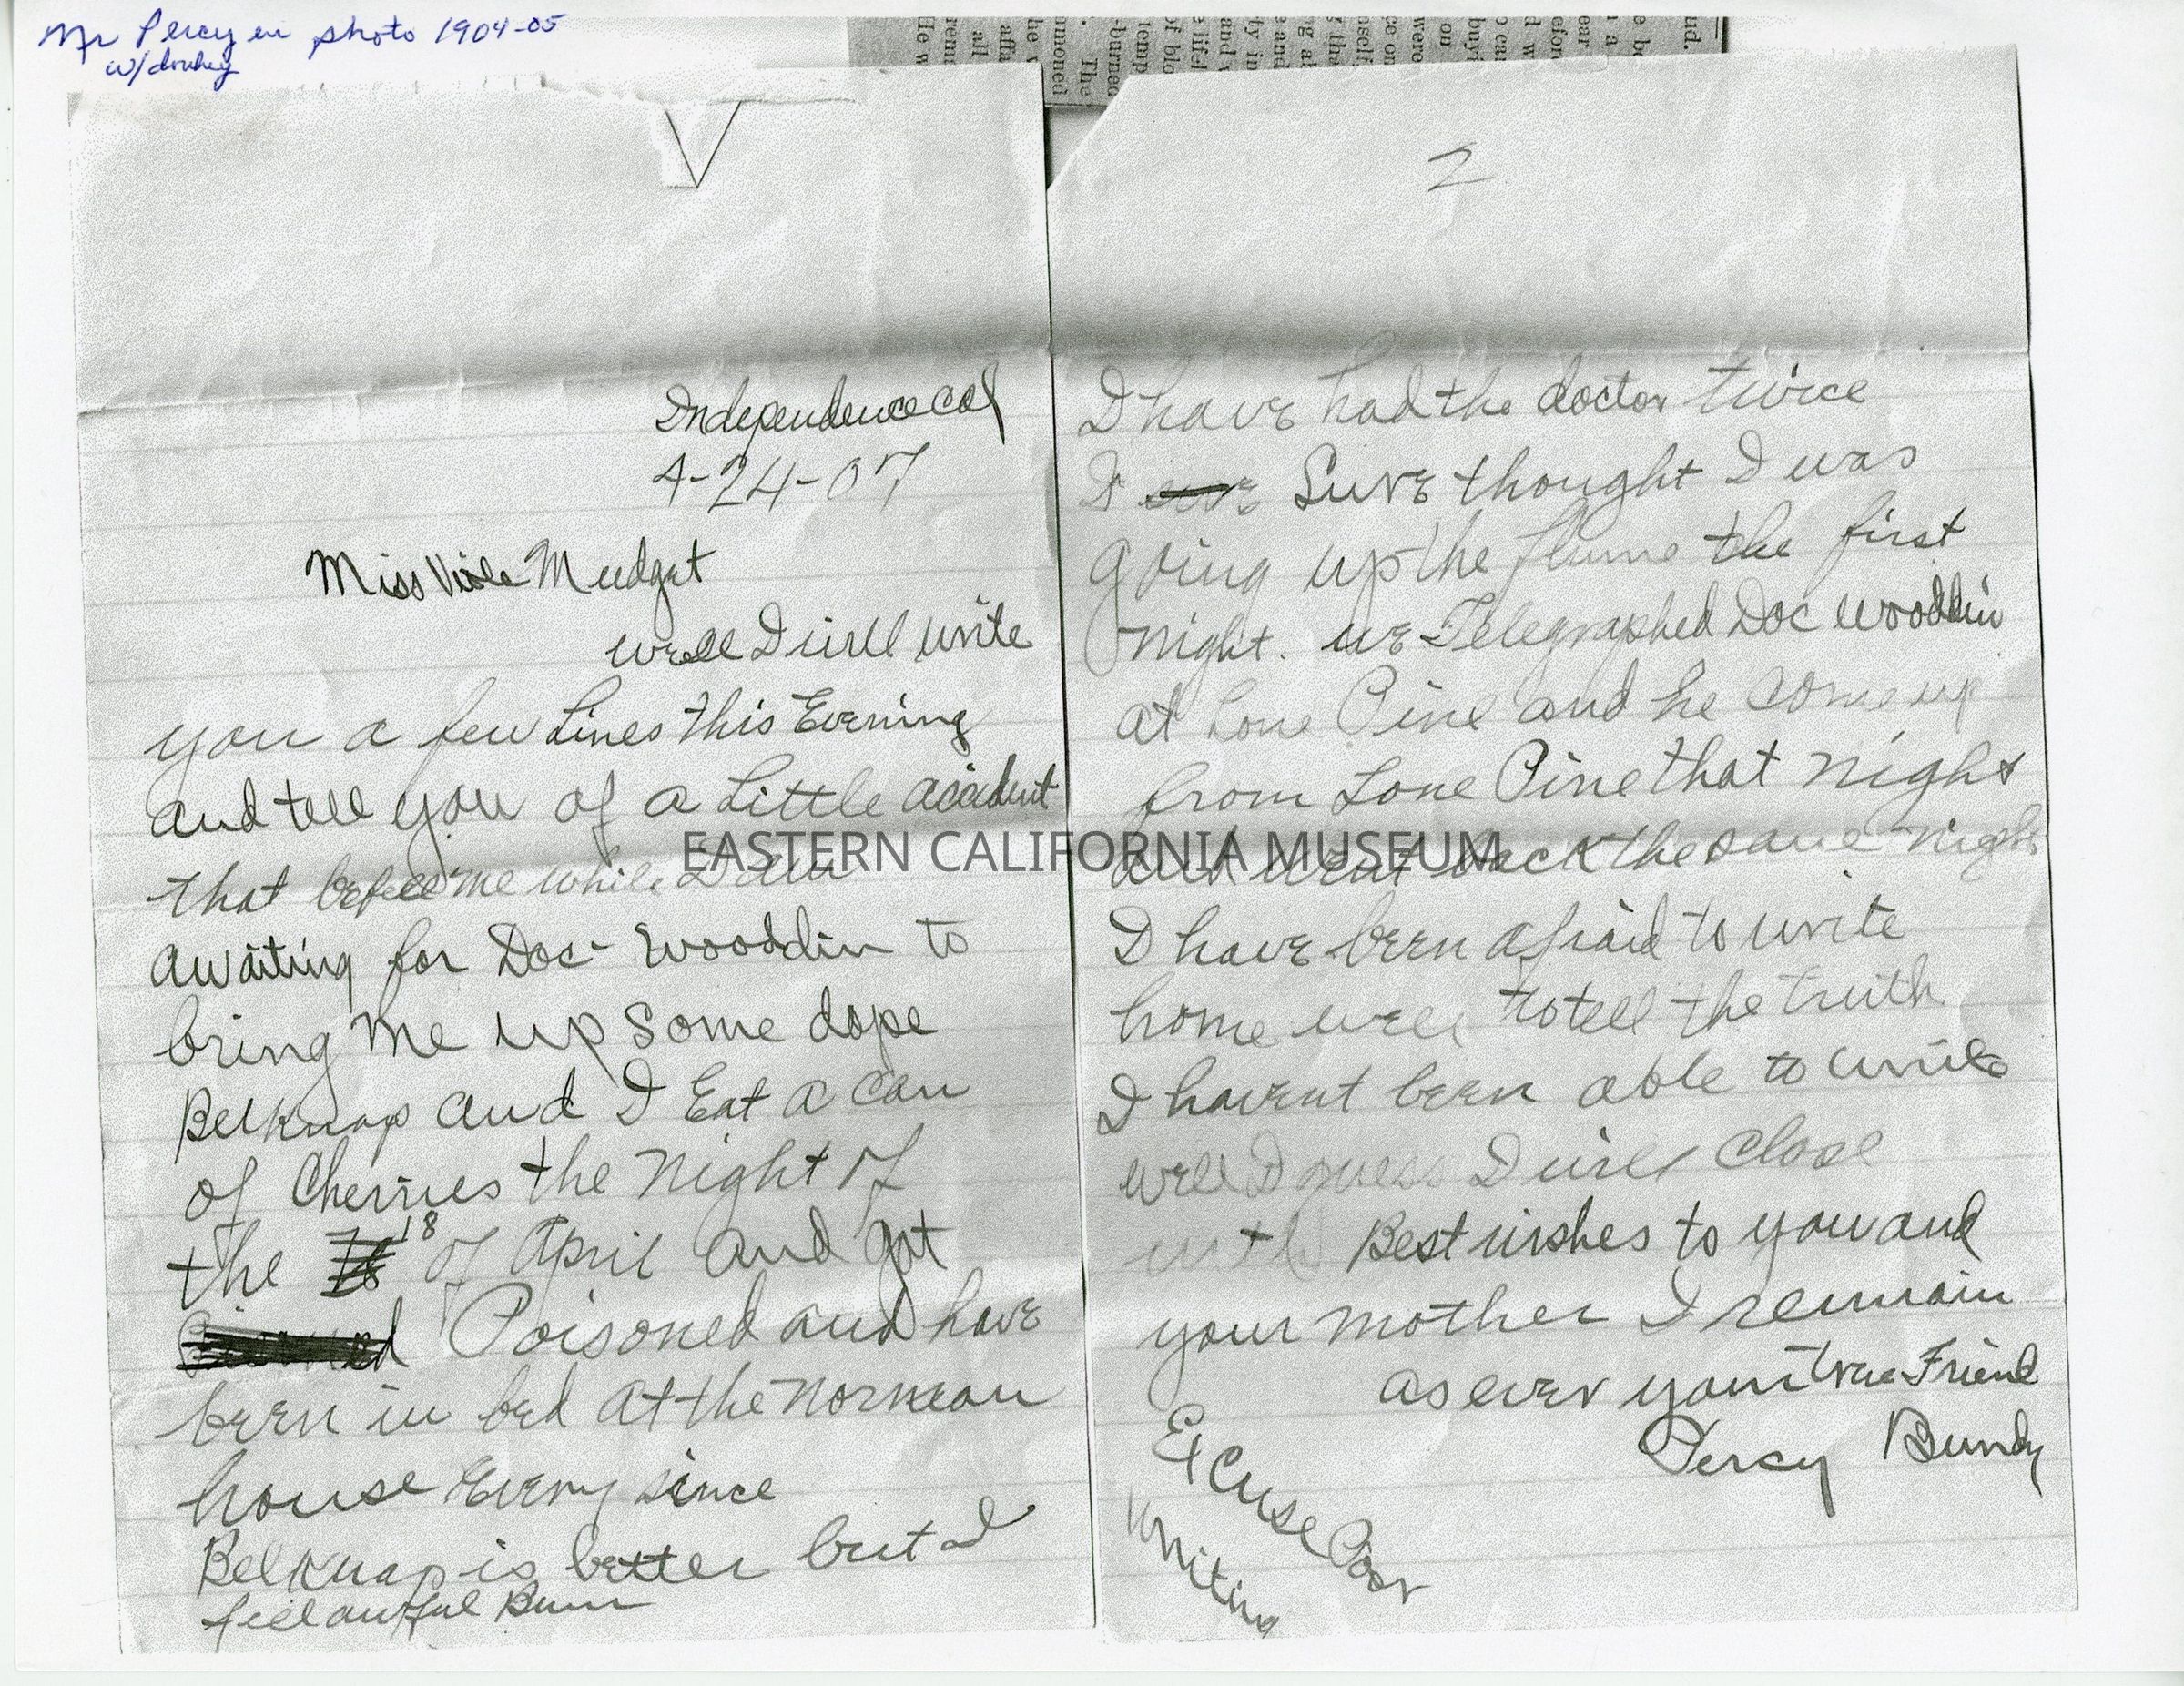 Mr Percy in photo 1904-05
w/donkey
Independence Cal
4-24-07
Miss Viola Mudget
well I will write
you a few Lines this Evening
and tell you of a Little accident
that befell me while I am
awaiting for Doc Wooddin to
bring me up some dope
Belknap and I Eat a can
of Cherries the night of
the 18 of April and got
Poisoned and have
been in bed at the Norman
house Every since
Belknap is better but I
feel awfful Bum
2
I have had the doctor twice
I Sure thought I was
going up the flume the first
night. we Telegraphed Doc Wooddin
at Lone Pine and he come up
from Lone Pine that night
and went back the same night
I have been afraid to write
home well to tell the truth
I havent been able to write
well I guess I will close
with Best wishes to you and
your mother I remain
as ever your true Friend
Percy Bundy
Excuse Poor
writing
EASTERN CALIFORNIA MUSEUM